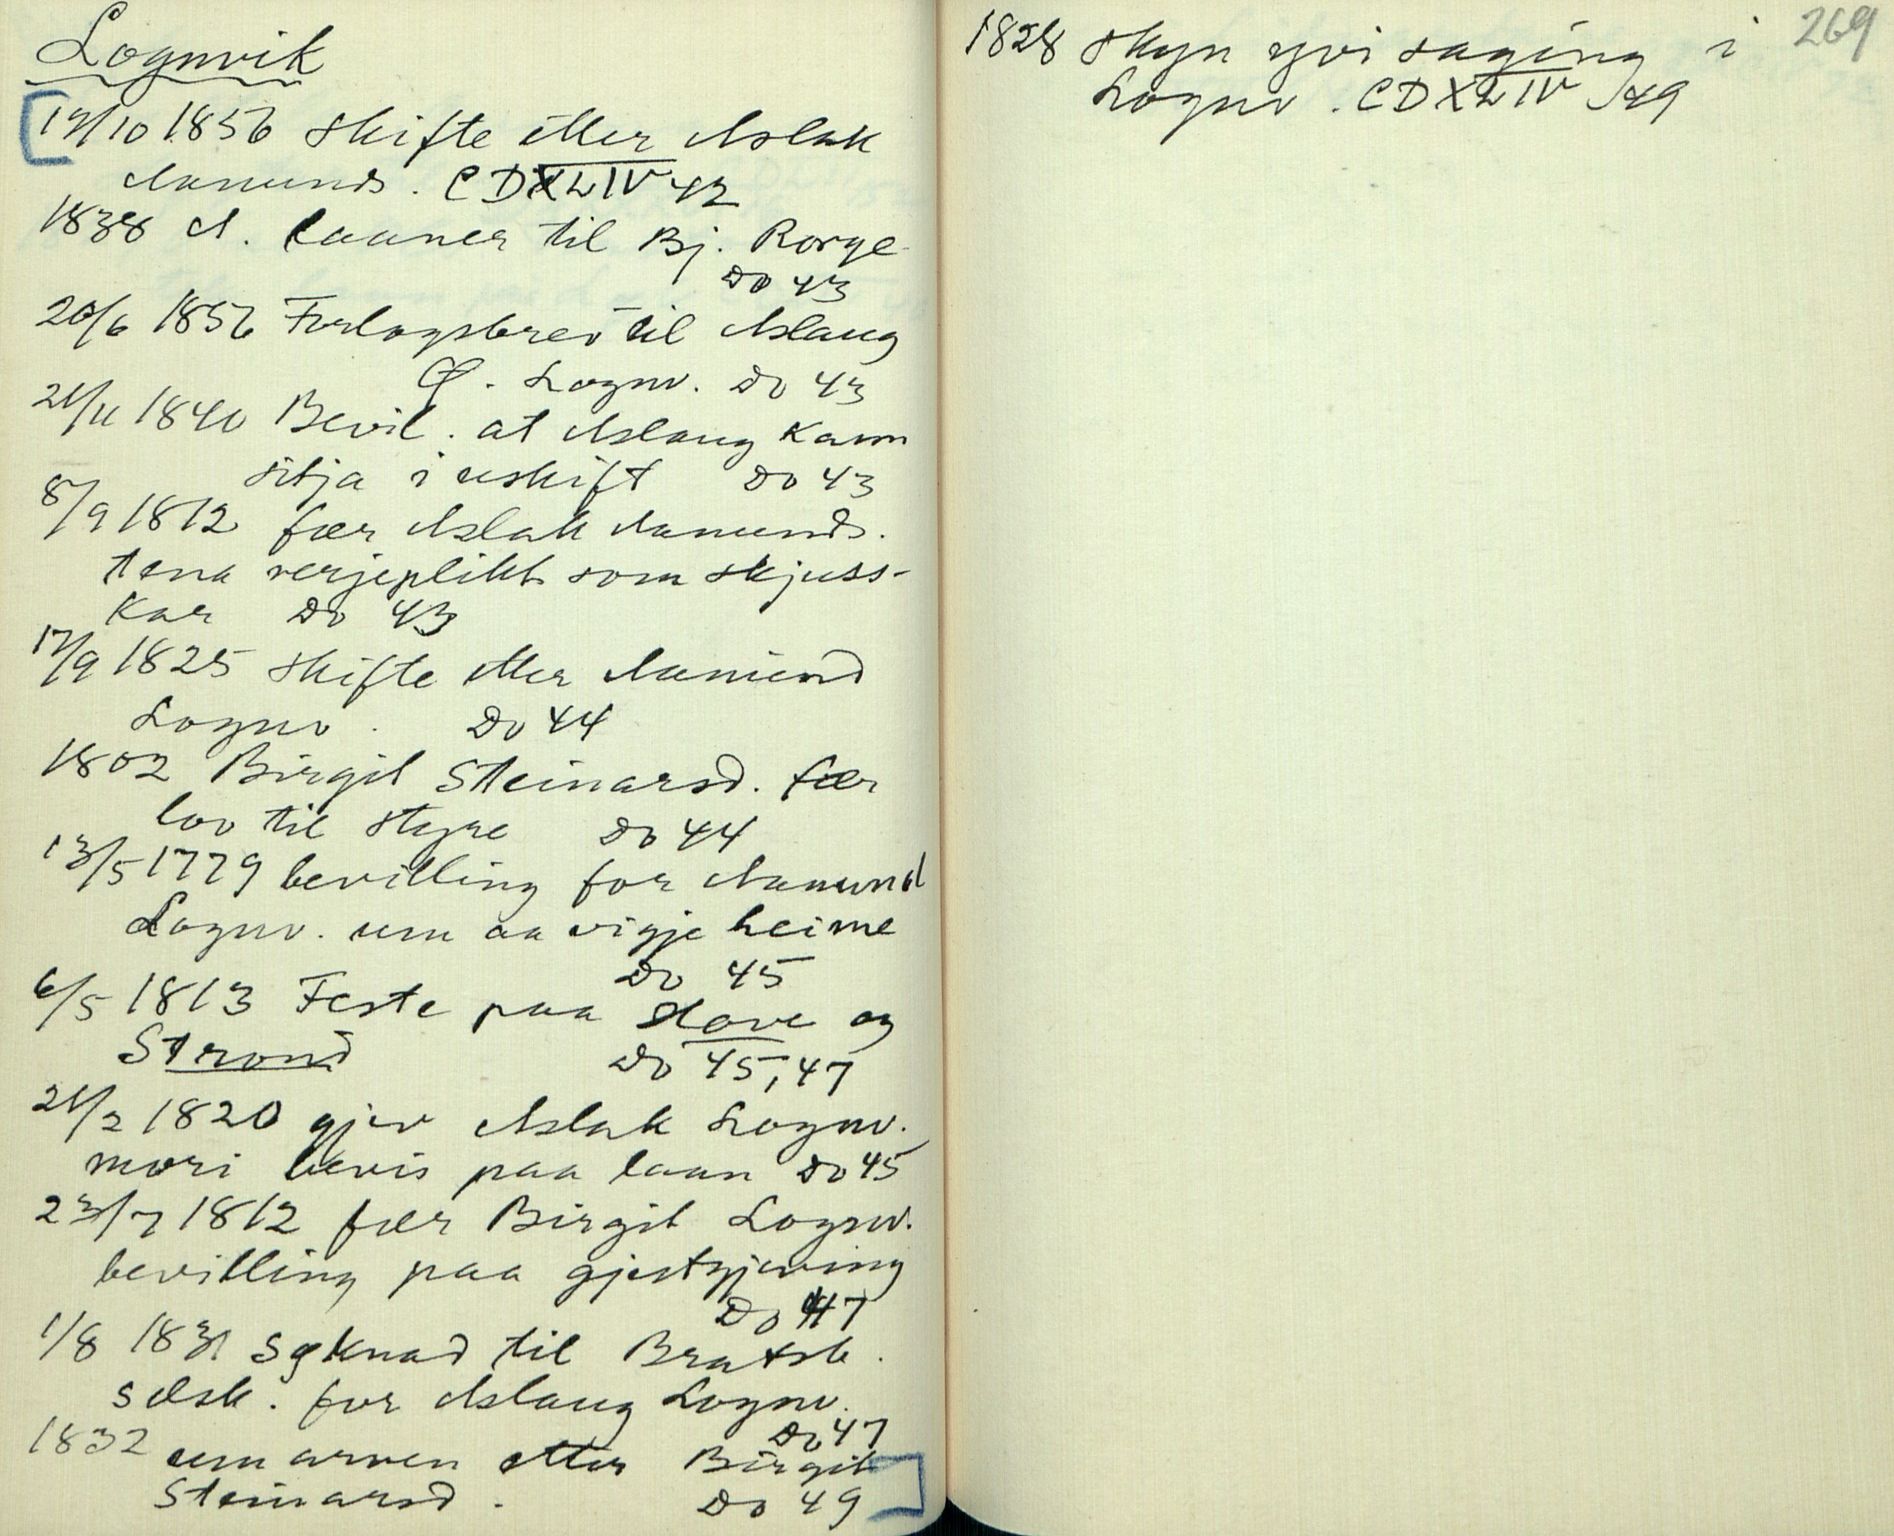 Lognvik
17/10 1856 Skifte etter Aslak
Aamunds. CDXLIV 42
1838 A. laaner til Bj. Rorge
Do 43
20/6 1856 Forlagsbrev til Aslaug
Ø. Lognv. Do 43
21/11 1840 Bevil. at Aslaug kann
sitja i uskift Do 43
8/9 1812 fær Aslak Aamunds.
tena verjeplikt som skjuss-
kar Do 43
17/9 1825 Skifte etter Aamund
Lognv. Do 44
1802 Birgit Steinarsd. fær
lov til styre Do 44
13/5 1779 bevilling for Aamund
Lognv. um aa vigje heime
Do 45
6/5 1813 Feste paa Hove og
Strond Do 45, 47
21/2 1820 gjev Aslak Lognv.
mori bevis paa laan Do 45
23/7 1812 fær Birgit Lognv.
bevilling paa gjestgjeving
Do 47
1/8 1831 Syknad til Bratsb.
selsk. for Aslaug Lognv.
Do 47
1832 um arven etter Birgit
Steinarsd. Do 49
269
1828 Skyn yvi saging i
Lognv. CDXLIV 49